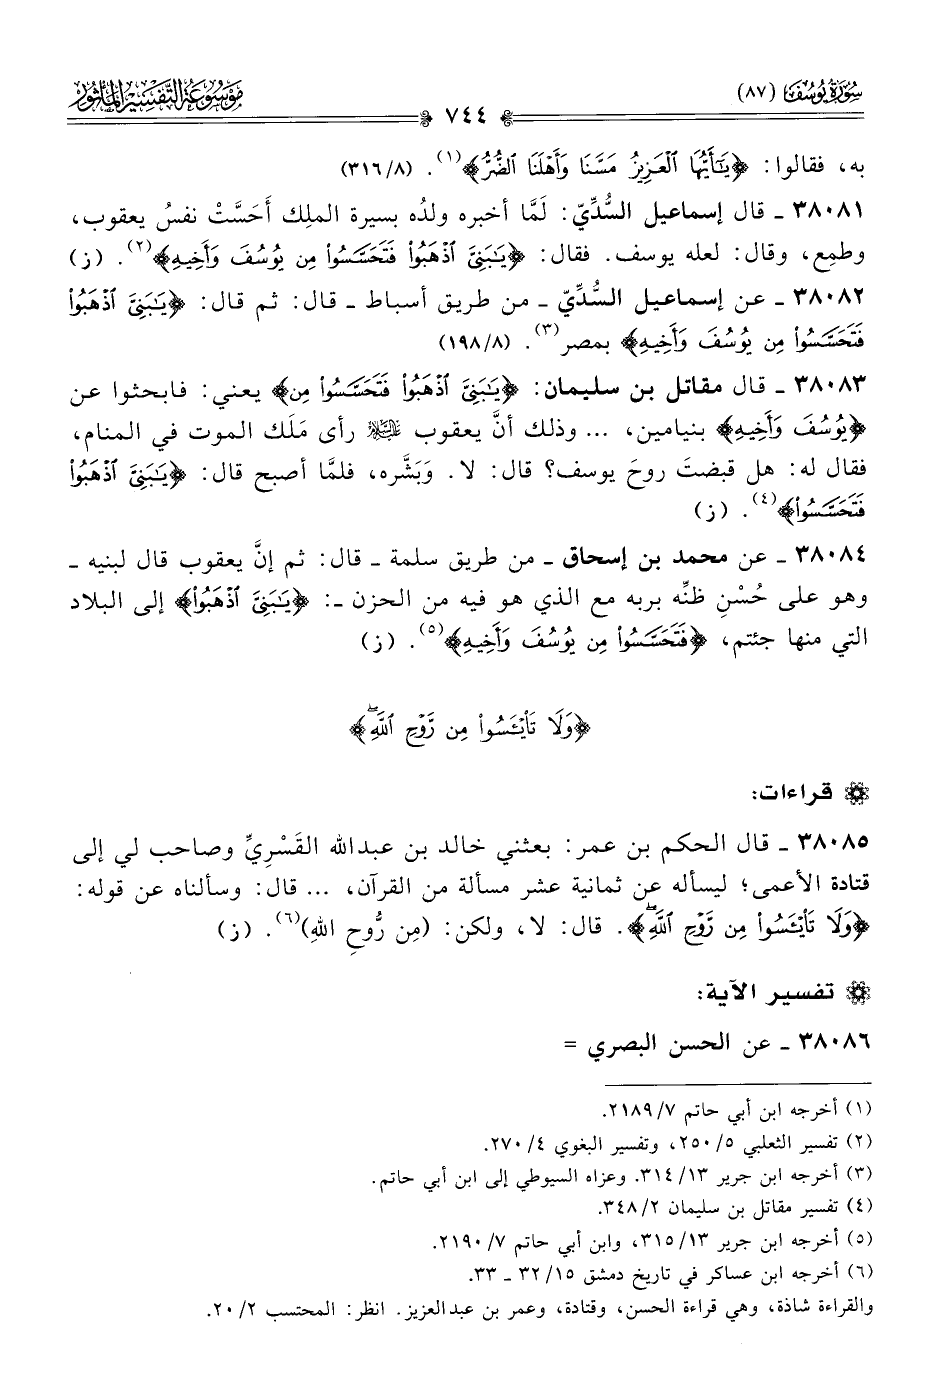 سُورَةُ يُوسُفَ (٨٧)
٧٤٤
مَوْسُوعَةُ التَّفْسِيرِ المَأْثُور
به، فقالوا: ﴿يَٰٓأَيُّهَا ٱلْعَزِيزُ مَسَّنَا وَأَهْلَنَا ٱلضُّرُّ﴾(١). (٣١٦/٨)
٣٨٠٨١ ـ قال إسماعيل السُّدِّيّ: لَمَّا أخبره ولدُه بسيرة الملِك أَحَسَّتْ نفسُ يعقوب،
وطمِع، وقال: لعله يوسف. فقال: ﴿يَٰبَنِيَّ ٱذْهَبُوا۟ فَتَحَسَّسُوا۟ مِن يُوسُفَ وَأَخِيهِ﴾(٢). (ز)
٣٨٠٨٢ ـ عن إسماعيل السُّدِّيّ ـ من طريق أسباط ـ قال: ثم قال: ﴿يَٰبَنِيَّ ٱذْهَبُوا۟
فَتَحَسَّسُوا۟ مِن يُوسُفَ وَأَخِيهِ﴾ بمصر(٣). (١٩٨/٨)
٣٨٠٨٣ ـ قال مقاتل بن سليمان: ﴿يَٰبَنِيَّ ٱذْهَبُوا۟ فَتَحَسَّسُوا۟ مِن﴾ يعني: فابحثوا عن
﴿يُوسُفَ وَأَخِيهِ﴾ بنيامين، ... وذلك أنَّ يعقوب عليه السلام رأى مَلَك الموت في المنام،
فقال له: هل قبضتَ روحَ يوسف؟ قال: لا. وَبَشَّره، فلمَّا أصبح قال: ﴿يَٰبَنِيَّ ٱذْهَبُوا۟
فَتَحَسَّسُوا۟﴾(٤). (ز)
٣٨٠٨٤ ـ عن محمد بن إسحاق ـ من طريق سلمة ـ قال: ثم إنَّ يعقوب قال لبنيه ـ
وهو على حُسْنِ ظنِّه بربه مع الذي هو فيه من الحزن ـ: ﴿يَٰبَنِيَّ ٱذْهَبُوا۟﴾ إلى البلاد
التي منها جئتم، ﴿فَتَحَسَّسُوا۟ مِن يُوسُفَ وَأَخِيهِ﴾(٥). (ز)
﴿وَلَا تَا۟يْـَٔسُوا۟ مِن رَّوْحِ ٱللَّهِ﴾
قراءات:
٣٨٠٨٥ ـ قال الحكم بن عمر: بعثني خالد بن عبدالله القَسْرِيِّ وصاحب لي إلى
قتادة الأعمى؛ ليسأله عن ثمانية عشر مسألة من القرآن، ... قال: وسألناه عن قوله:
﴿وَلَا تَا۟يْـَٔسُوا۟ مِن رَّوْحِ ٱللَّهِ﴾. قال: لا، ولكن: (مِن رُّوحِ اللهِ)(٦). (ز)
تفسير الآية:
٣٨٠٨٦ ـ عن الحسن البصري =
(١) أخرجه ابن أبي حاتم ٢١٨٩/٧.
(٢) تفسير الثعلبي ٢٥٠/٥، وتفسير البغوي ٢٧٠/٤.
(٣) أخرجه ابن جرير ٣١٤/١٣. وعزاه السيوطي إلى ابن أبي حاتم.
(٤) تفسير مقاتل بن سليمان ٣٤٨/٢.
(٥) أخرجه ابن جرير ٣١٥/١٣، وابن أبي حاتم ٢١٩٠/٧.
(٦) أخرجه ابن عساكر في تاريخ دمشق ٣٢/١٥ ـ ٣٣.
والقراءة شاذة، وهي قراءة الحسن، وقتادة، وعمر بن عبدالعزيز. انظر: المحتسب ٢٠/٢.